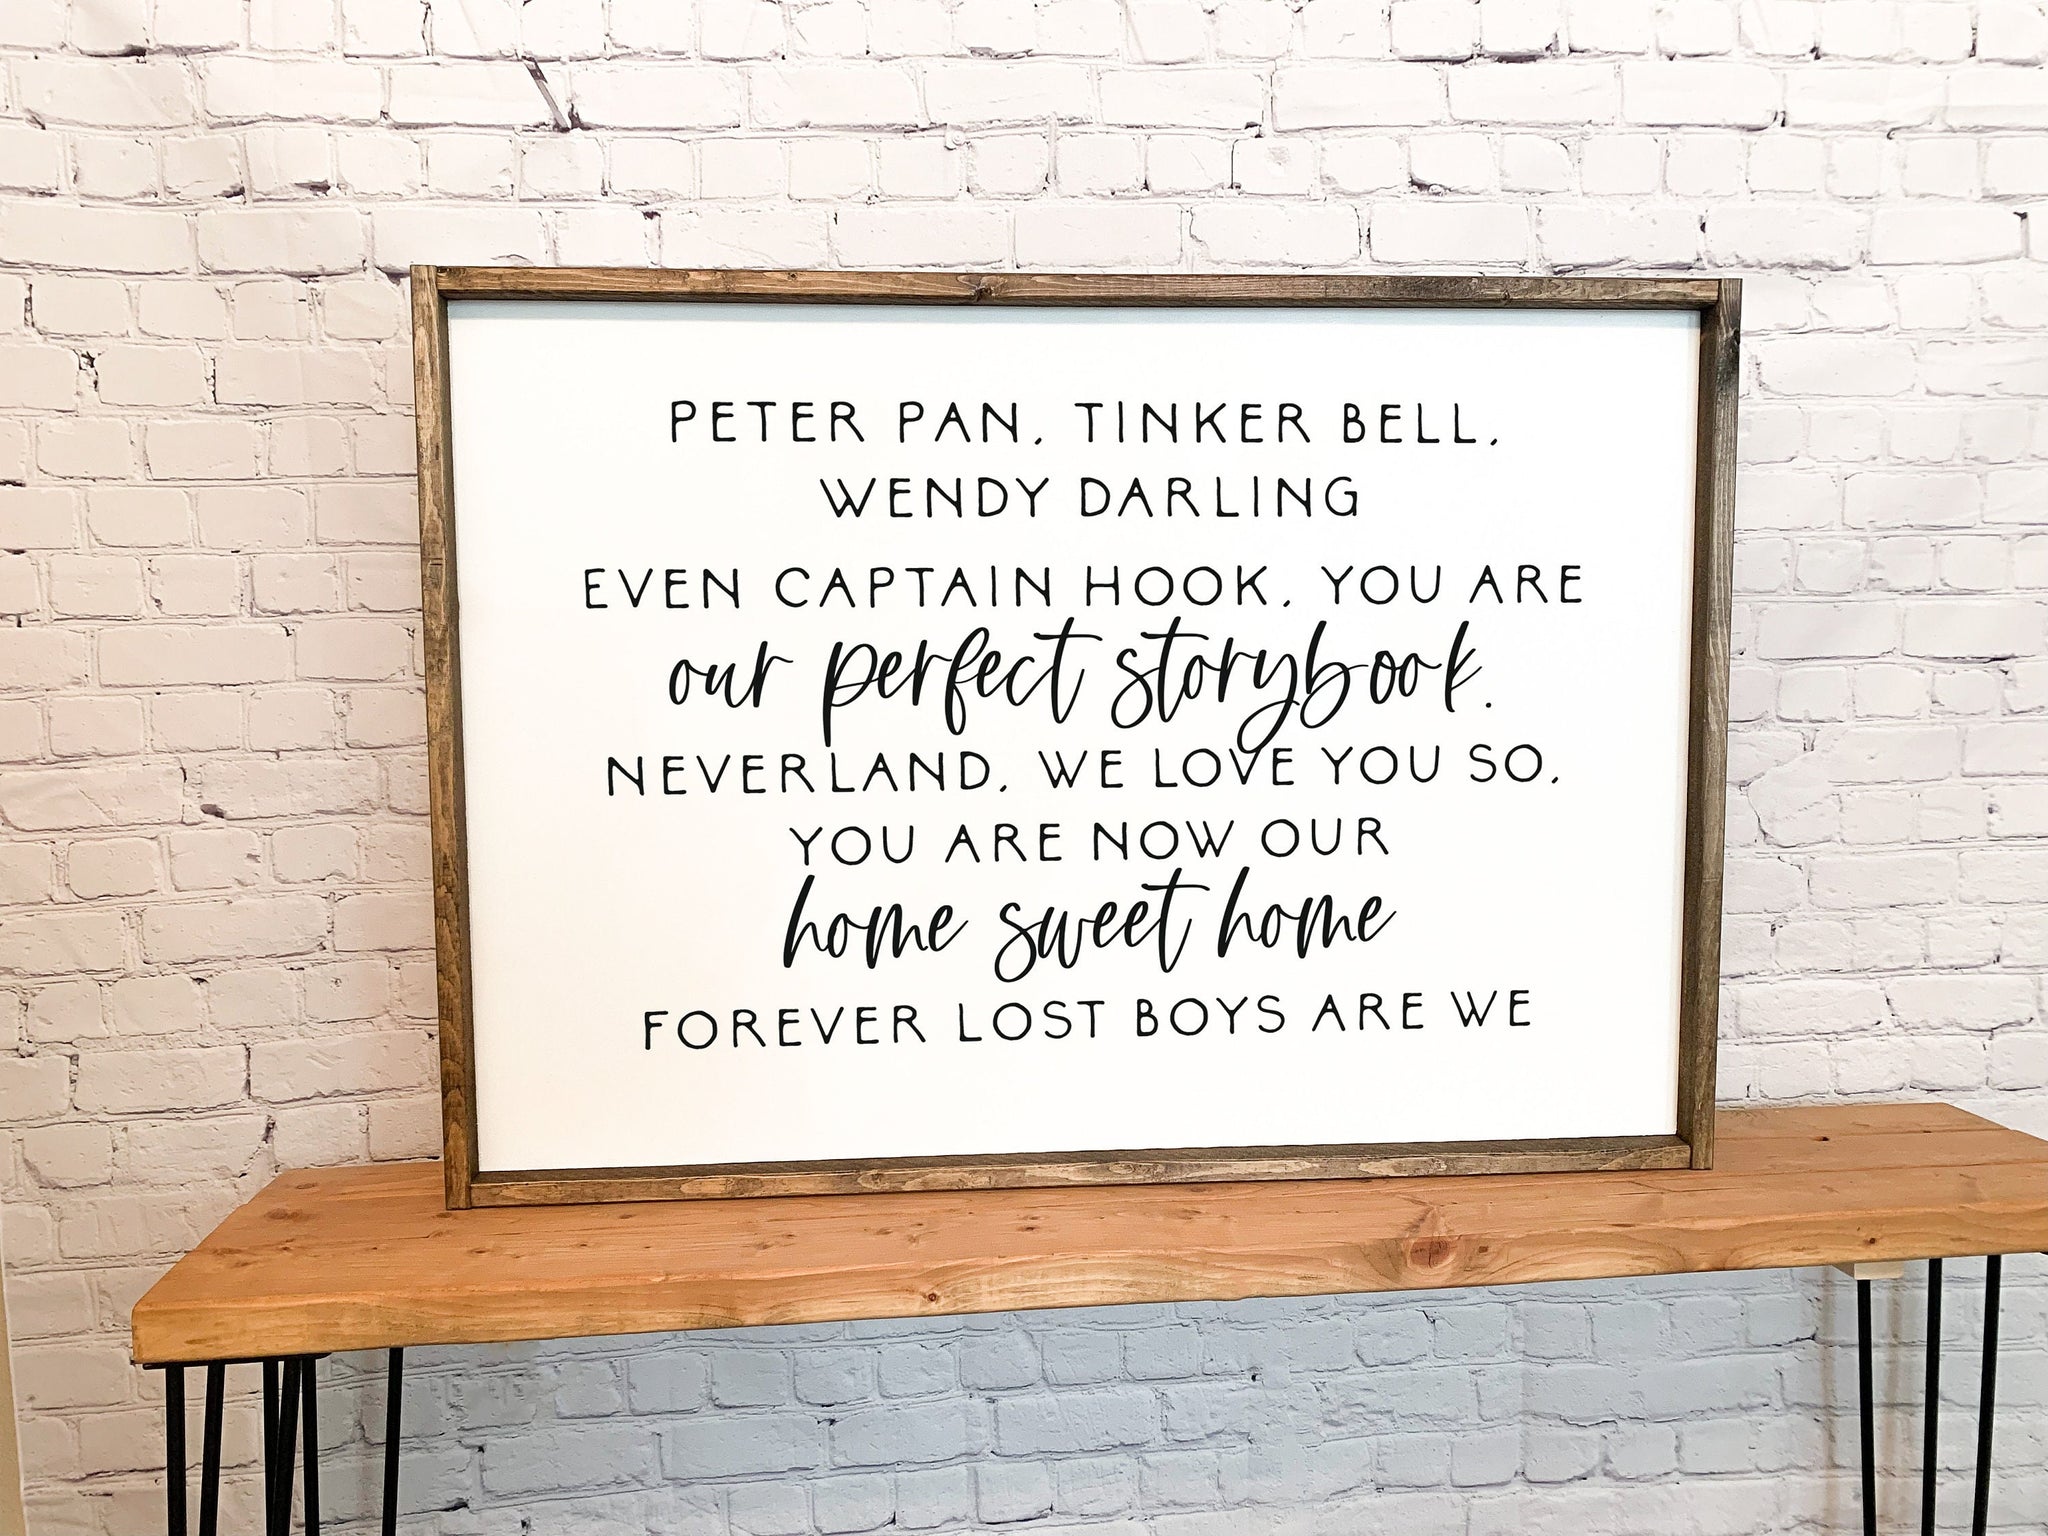 PETER PAN, TINKER BELL,
WENDY DARLING
EVEN CAPTAIN HOOK, YOU ARE
our perfect storybook.
NEVERLAND, WE LOVE YOU SO,
YOU ARE NOW OUR
home sweet home
FOREVER LOST BOYS ARE WE